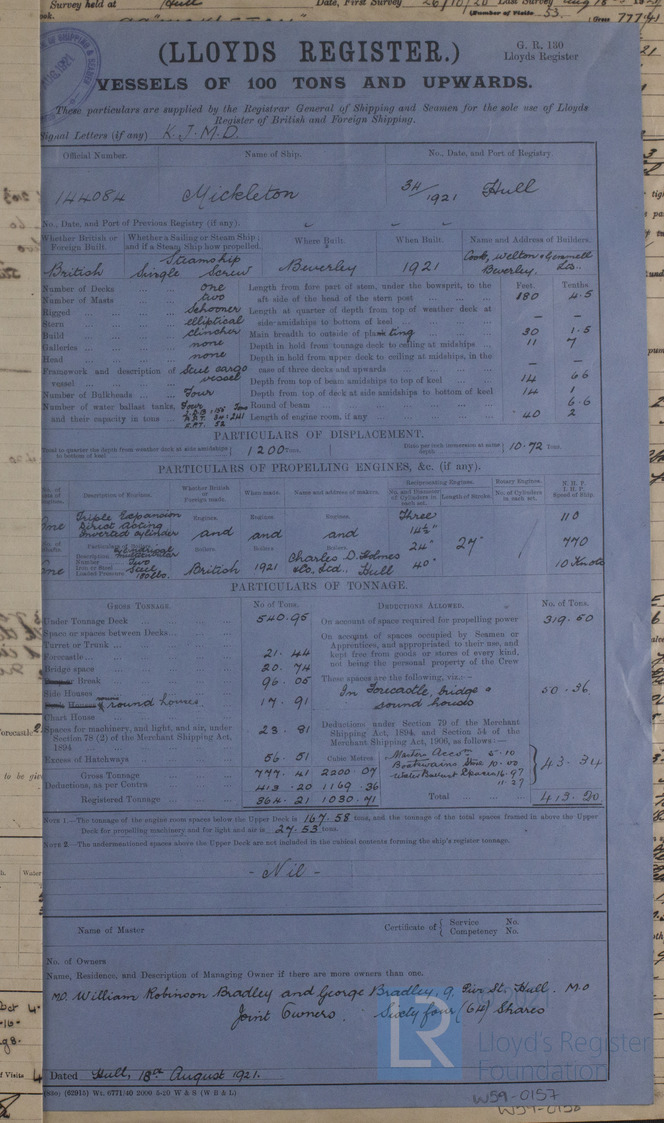 Survey held at Hull Date, First Survey 26/10/20 Last Survey
(Number of Visits 53.
Gross 777.41
(LLOYDS REGISTER.)
G. R. 130
Lloyds Register
VESSELS OF 100 TONS AND UPWARDS.
These particulars are supplied by the Registrar General of Shipping and Seamen for the sole use of Lloyds
Register of British and Foreign Shipping.
Signal Letters (if any) K.J.M.D.
Official Number. Name of Ship. No., Date, and Port of Registry.
144084 Mickleton 34/1921 Hull
No., Date, and Port of Previous Registry (if any).
Whether British or Foreign Built. Whether a Sailing or Steam Ship; and if a Steam Ship how propelled. Where Built. When Built. Name and Address of Builders.
British Steamship Single Screw Beverley 1921 Cook, Welton & Gemmell Ltd. Beverley.
Feet. Tenths
Number of Decks one
Number of Masts two
Rigged Schooner
Stern elliptical
Build Clincher
Galleries none
Head none
Framework and description of vessel Steel cargo vessel
Number of Bulkheads Four
Number of water ballast tanks, and their capacity in tons Four
Length from fore part of stem, under the bowsprit, to the aft side of the head of the stern post 180 4.5
Length at quarter of depth from top of weather deck at side amidships to bottom of keel – –
Main breadth to outside of plating 30 1.5
Depth in hold from tonnage deck to ceiling at midships 11 7
Depth in hold from upper deck to ceiling at midships, in the case of three decks and upwards – –
Depth from top of beam amidships to top of keel 14 66
Depth from top of deck at side amidships to bottom of keel 14 1
Round of beam 6.6
Length of engine room, if any 40 2
PARTICULARS OF DISPLACEMENT.
Total to quarter the depth from weather deck at side amidships to bottom of keel 1200 Tons. Ditto per inch immersion at same depth 10.72 Tons.
PARTICULARS OF PROPELLING ENGINES, &c. (if any).
No. of Sets of Engines. Description of Engines. Whether British or Foreign made. When made. Name and address of makers. Reciprocating Engines. No. and Diameter of Cylinders in each set. Length of Stroke. Rotary Engines. No. of Cylinders in each set. N.H.P. I.H.P. Speed of Ship.
One Triple Expansion Direct Acting Inverted Cylinder
Engines. and Boilers British
Engines and Boilers 1921
Engines. and Boilers Charles D. Holmes & Co, Ltd., Hull
Three 14½" 24" 40" 27" 110 770 10 Knots
No. of Shafts. One
Particulars of Boilers. Description Cylindrical
Number Two
Iron or Steel Steel
Loaded Pressure 180 lbs.
PARTICULARS OF TONNAGE.
GROSS TONNAGE. No of Tons. DEDUCTIONS ALLOWED. No. of Tons.
Under Tonnage Deck 540.95
Space or spaces between Decks
Turret or Trunk
Forecastle 21.44
Bridge space 20.74
Break 96.05
Side Houses
round houses 17.91
Chart House
Spaces for machinery, and light, and air, under Section 78 (2) of the Merchant Shipping Act, 1894 23.81
Excess of Hatchways 56.51
Cubic Metres
Gross Tonnage 777.41 2200.07
Deductions, as per Contra 413.20 1169.36
Registered Tonnage 364.21 1030.71
On account of space required for propelling power 319.50
On account of spaces occupied by Seamen or
Apprentices, and appropriated to their use, and
kept free from goods or stores of every kind,
not being the personal property of the Crew
These spaces are the following, viz.:—
In Forecastle, bridge & round houses 50.36
Deductions under Section 79 of the Merchant
Shipping Act, 1894, and Section 54 of the
Merchant Shipping Act, 1906, as follows:—
Masters Accom 5.10
Boatswains Store 10.00
Water Ballast Spaces 16.97
11.27
43.34
Total 413.20
NOTE 1.—The tonnage of the engine room spaces below the Upper Deck is 167.58 tons, and the tonnage of the total spaces framed in above the Upper
Deck for propelling machinery and for light and air is 27.53 tons.
NOTE 2.—The undermentioned spaces above the Upper Deck are not included in the cubical contents forming the ship's register tonnage.
- Nil -
Name of Master Certificate of { Service No. Competency No.
No. of Owners
Name, Residence, and Description of Managing Owner if there are more owners than one.
MO. William Robinson Bradley and George Bradley, 9, Pier St. Hull. M.O
Joint Owners. Sixty four (64) Shares
LR
Lloyd's Register
Foundation
Dated Hull, 18th August 1921.
(62915) Wt. 6771/40 2000 5-20 W & S (W B & L)
W59-0157
W59-0158